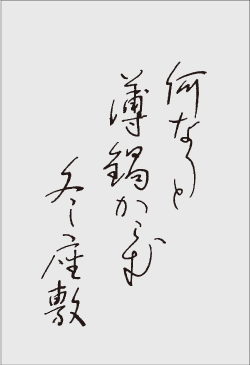 何なりと
薄鍋かこむ
冬座敷